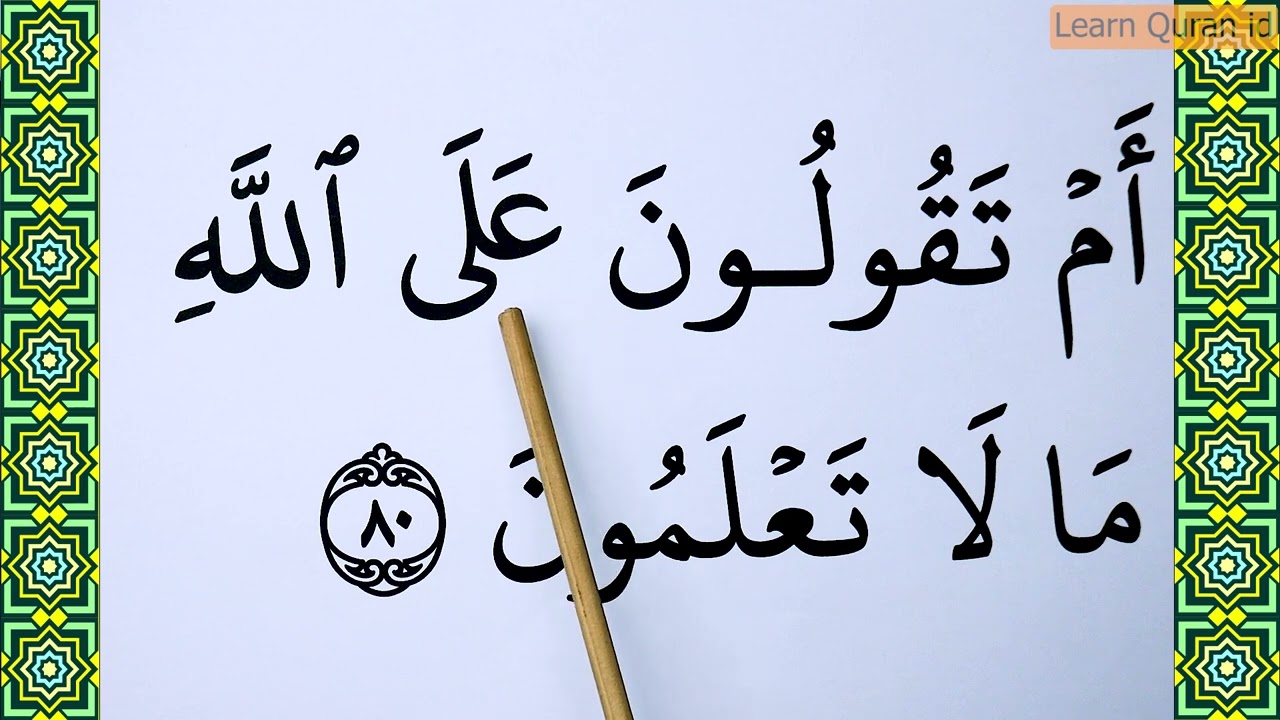 Learn Quran id
أَمۡ تَقُولُونَ عَلَى ٱللَّهِ
مَا لَا تَعۡلَمُونَ ٨٠